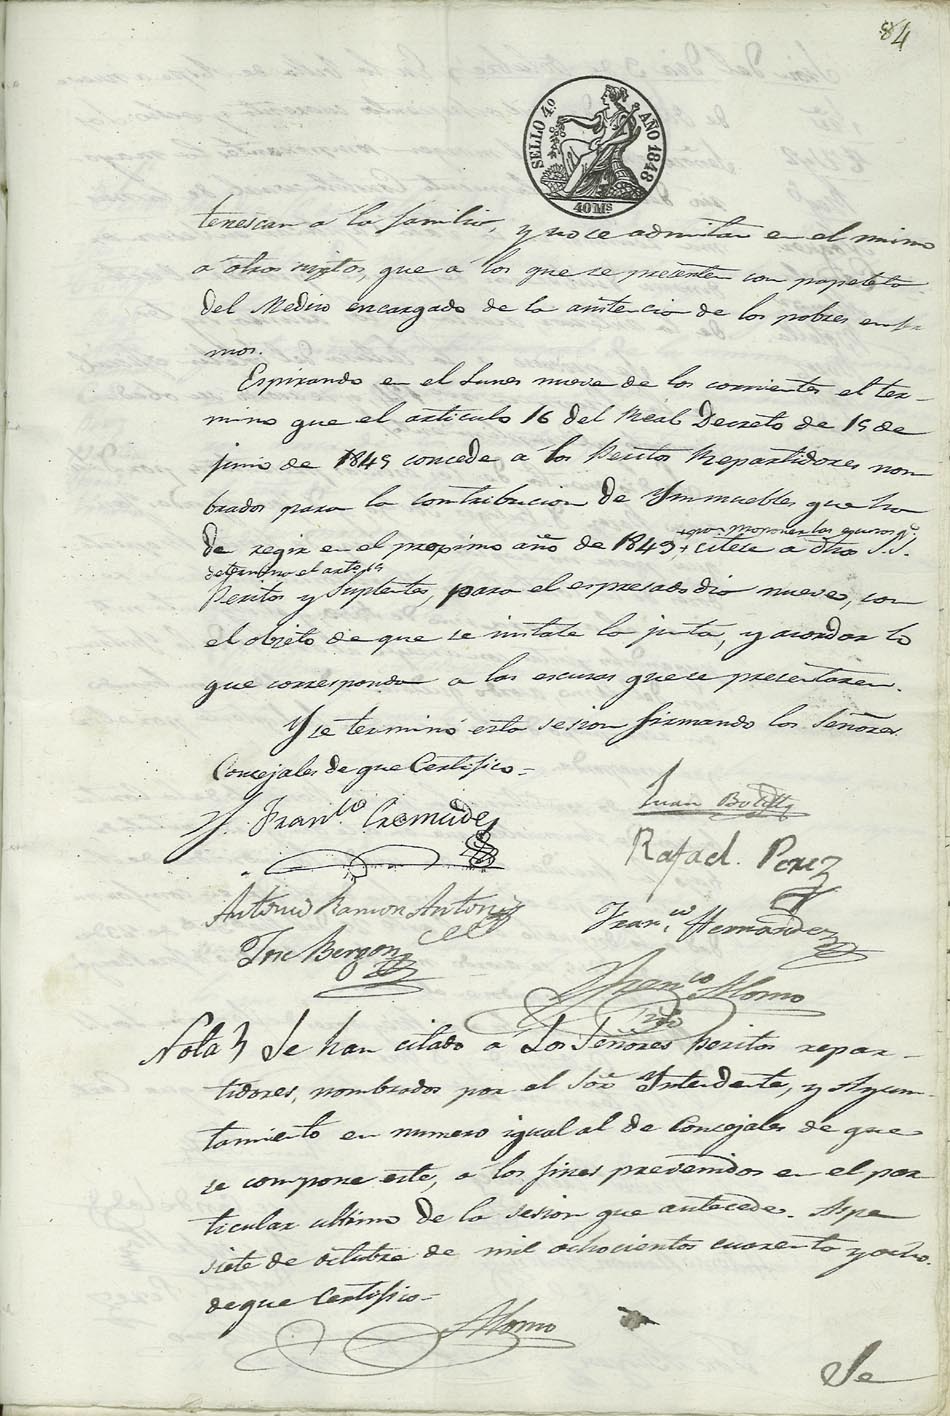 84
SELLO 4.º AÑO 1848
40 Ms
tenescan a la familia, y no se admitan en el mismo
a otros sugetos, que a los que se presenten con papeleta
del Medico encargado de la asistencia de los pobres enfer
mos.
Espirando en el Lunes nueve de los corrientes el ter-
mino que el articulo 16 del Real Decreto de 15 de
junio de 1845 concede a los Peritos Repartidores nom
brados para la contribucion de Ynmuebles que ha
que proponer las escusas q.e
de regir en el proximo año de 1849 + citese a otros S.S.
determina el art.o
Peritos y Suplentes, para el espresado dia nueve, con
el objeto de que se instale la junta, y acordar lo
que corresponda a las escusas que se presentaren.
Y se terminó esta sesion firmando los Señores
Concejales de que Certifico =
Juan Botella
Fran.co Cremades
Rafael Perez
Antonio Ramon Antonio
Fran.co Hernandez
Jose Berzon
Fran.co Alonso
Srio
Nota Se han citado a Los Señores Peritos repar-
tidores, nombrados por el Sor Yntendente, y Ayun-
tamiento en numero igual al de Concejales de que
se compone este, a los fines prevenidos en el par
ticular ultimo de la sesion que antecede. Aspe
siete de octubre de mil ochocientos cuarenta y ocho.
de que Certifico =
Alonso
Se